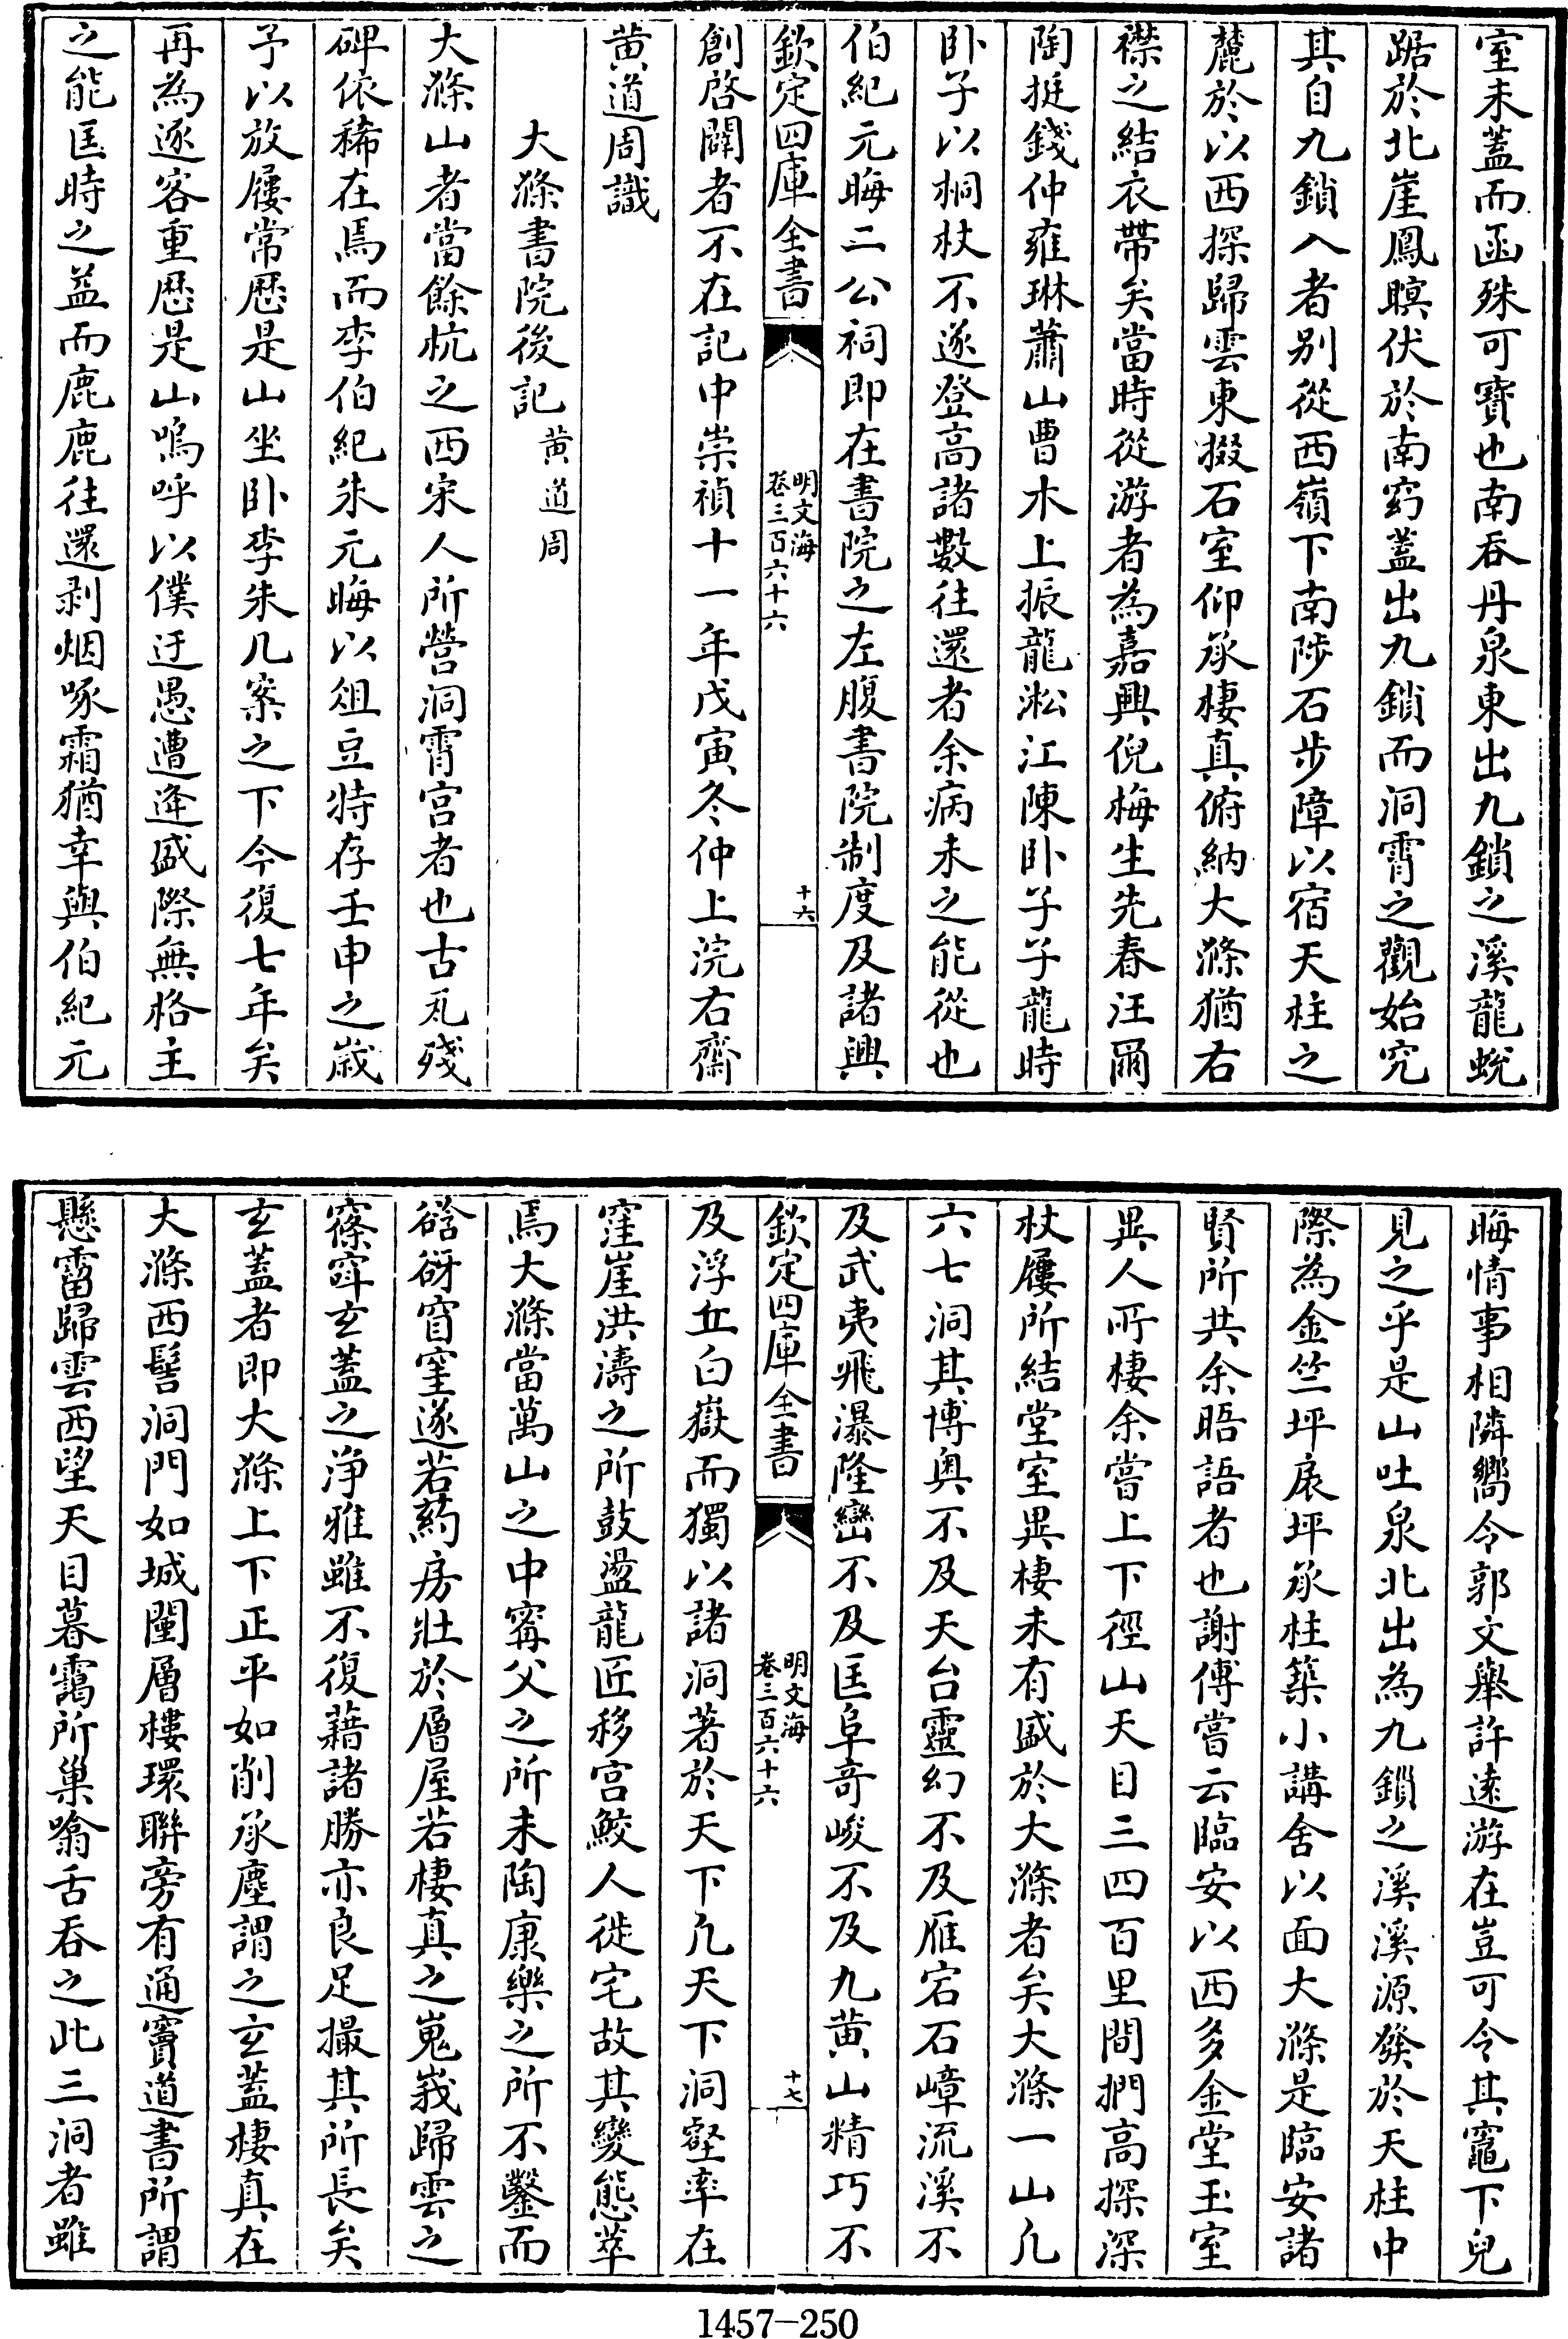 室未蓋而函殊可寳也南吞丹泉東出九鎖之溪龍蛻
踞於北崖鳳瞑伏於南窈蓋出九鎖而洞霄之觀始究
其自九鎖入者别從西嶺下南陟石步障以宿天柱之
麓於以西探歸雲東掇石室仰承棲真俯納大滌猶右
襟之結衣帶矣當時從游者為嘉興倪梅生先春汪爾
陶挺錢仲雍琳蕭山曹木上振龍淞江陳卧子子龍時
卧子以桐杖不遂登高諸數往還者余病未之能從也
伯紀元晦二公祠即在書院之左腹書院制度及諸興
欽定四庫全書
明文海
卷三百六十六
十六
創啓闢者不在記中崇禎十一年戊寅冬仲上浣右齋
黄道周識
大滌書院後記 黄道周
大滌山者當餘杭之西宋人所營洞霄宫者也古瓦殘
碑依稀在焉而李伯紀朱元晦以俎豆特存壬申之歲
予以放屨常厯是山坐卧李朱几案之下今復七年矣
再為逐客重厯是山嗚呼以僕迂愚遭逢盛際無格主
之能匡時之益而鹿鹿往還剥烟啄霜猶幸與伯紀元
晦情事相隣嚮令郭文舉許逺游在豈可令其竈下兒
見之乎是山吐泉北出為九鎖之溪溪源發於天柱中
際為金竺坪扆坪承柱築小講舍以面大滌是臨安諸
賢所共余晤語者也謝傅嘗云臨安以西多金堂玉室
異人所棲余嘗上下徑山天目三四百里間捫高探深
杖屨所結堂室異棲未有盛於大滌者矣大滌一山凡
六七洞其博奥不及天台靈幻不及雁宕石嶂流溪不
及武夷飛瀑隆巒不及匡阜竒峻不及九黄山精巧不
欽定四庫全書
明文海
卷三百六十六
十七
及浮丘白嶽而獨以諸洞著於天下凡天下洞壑率在
窪崖洪濤之所鼓盪龍匠移宫鮫人徙宅故其變態萃
焉大滌當萬山之中甯父之所未陶康樂之所不鑿而
谽谺窅窐遂若葯房壯於層屋若棲真之嵬峩歸雲之
窱窱玄蓋之浄雅雖不復藉諸勝亦良足撮其所長矣
玄蓋者即大滌上下正平如削承塵謂之玄蓋棲真在
大滌西髻洞門如城闉層樓環聯旁有通竇道書所謂
懸霤歸雲西望天目暮靄所巢噏舌吞之此三洞者雖
1457-250